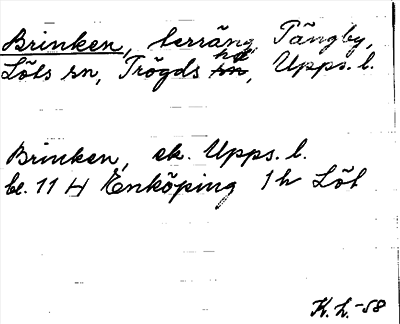 Brinken, terräng, Tängby,
Löts sn, Trögds hd, Upps. l.
Brinken, ek. Upps. l.
bl. 114 Enköping 1h Löt
K. L. -58